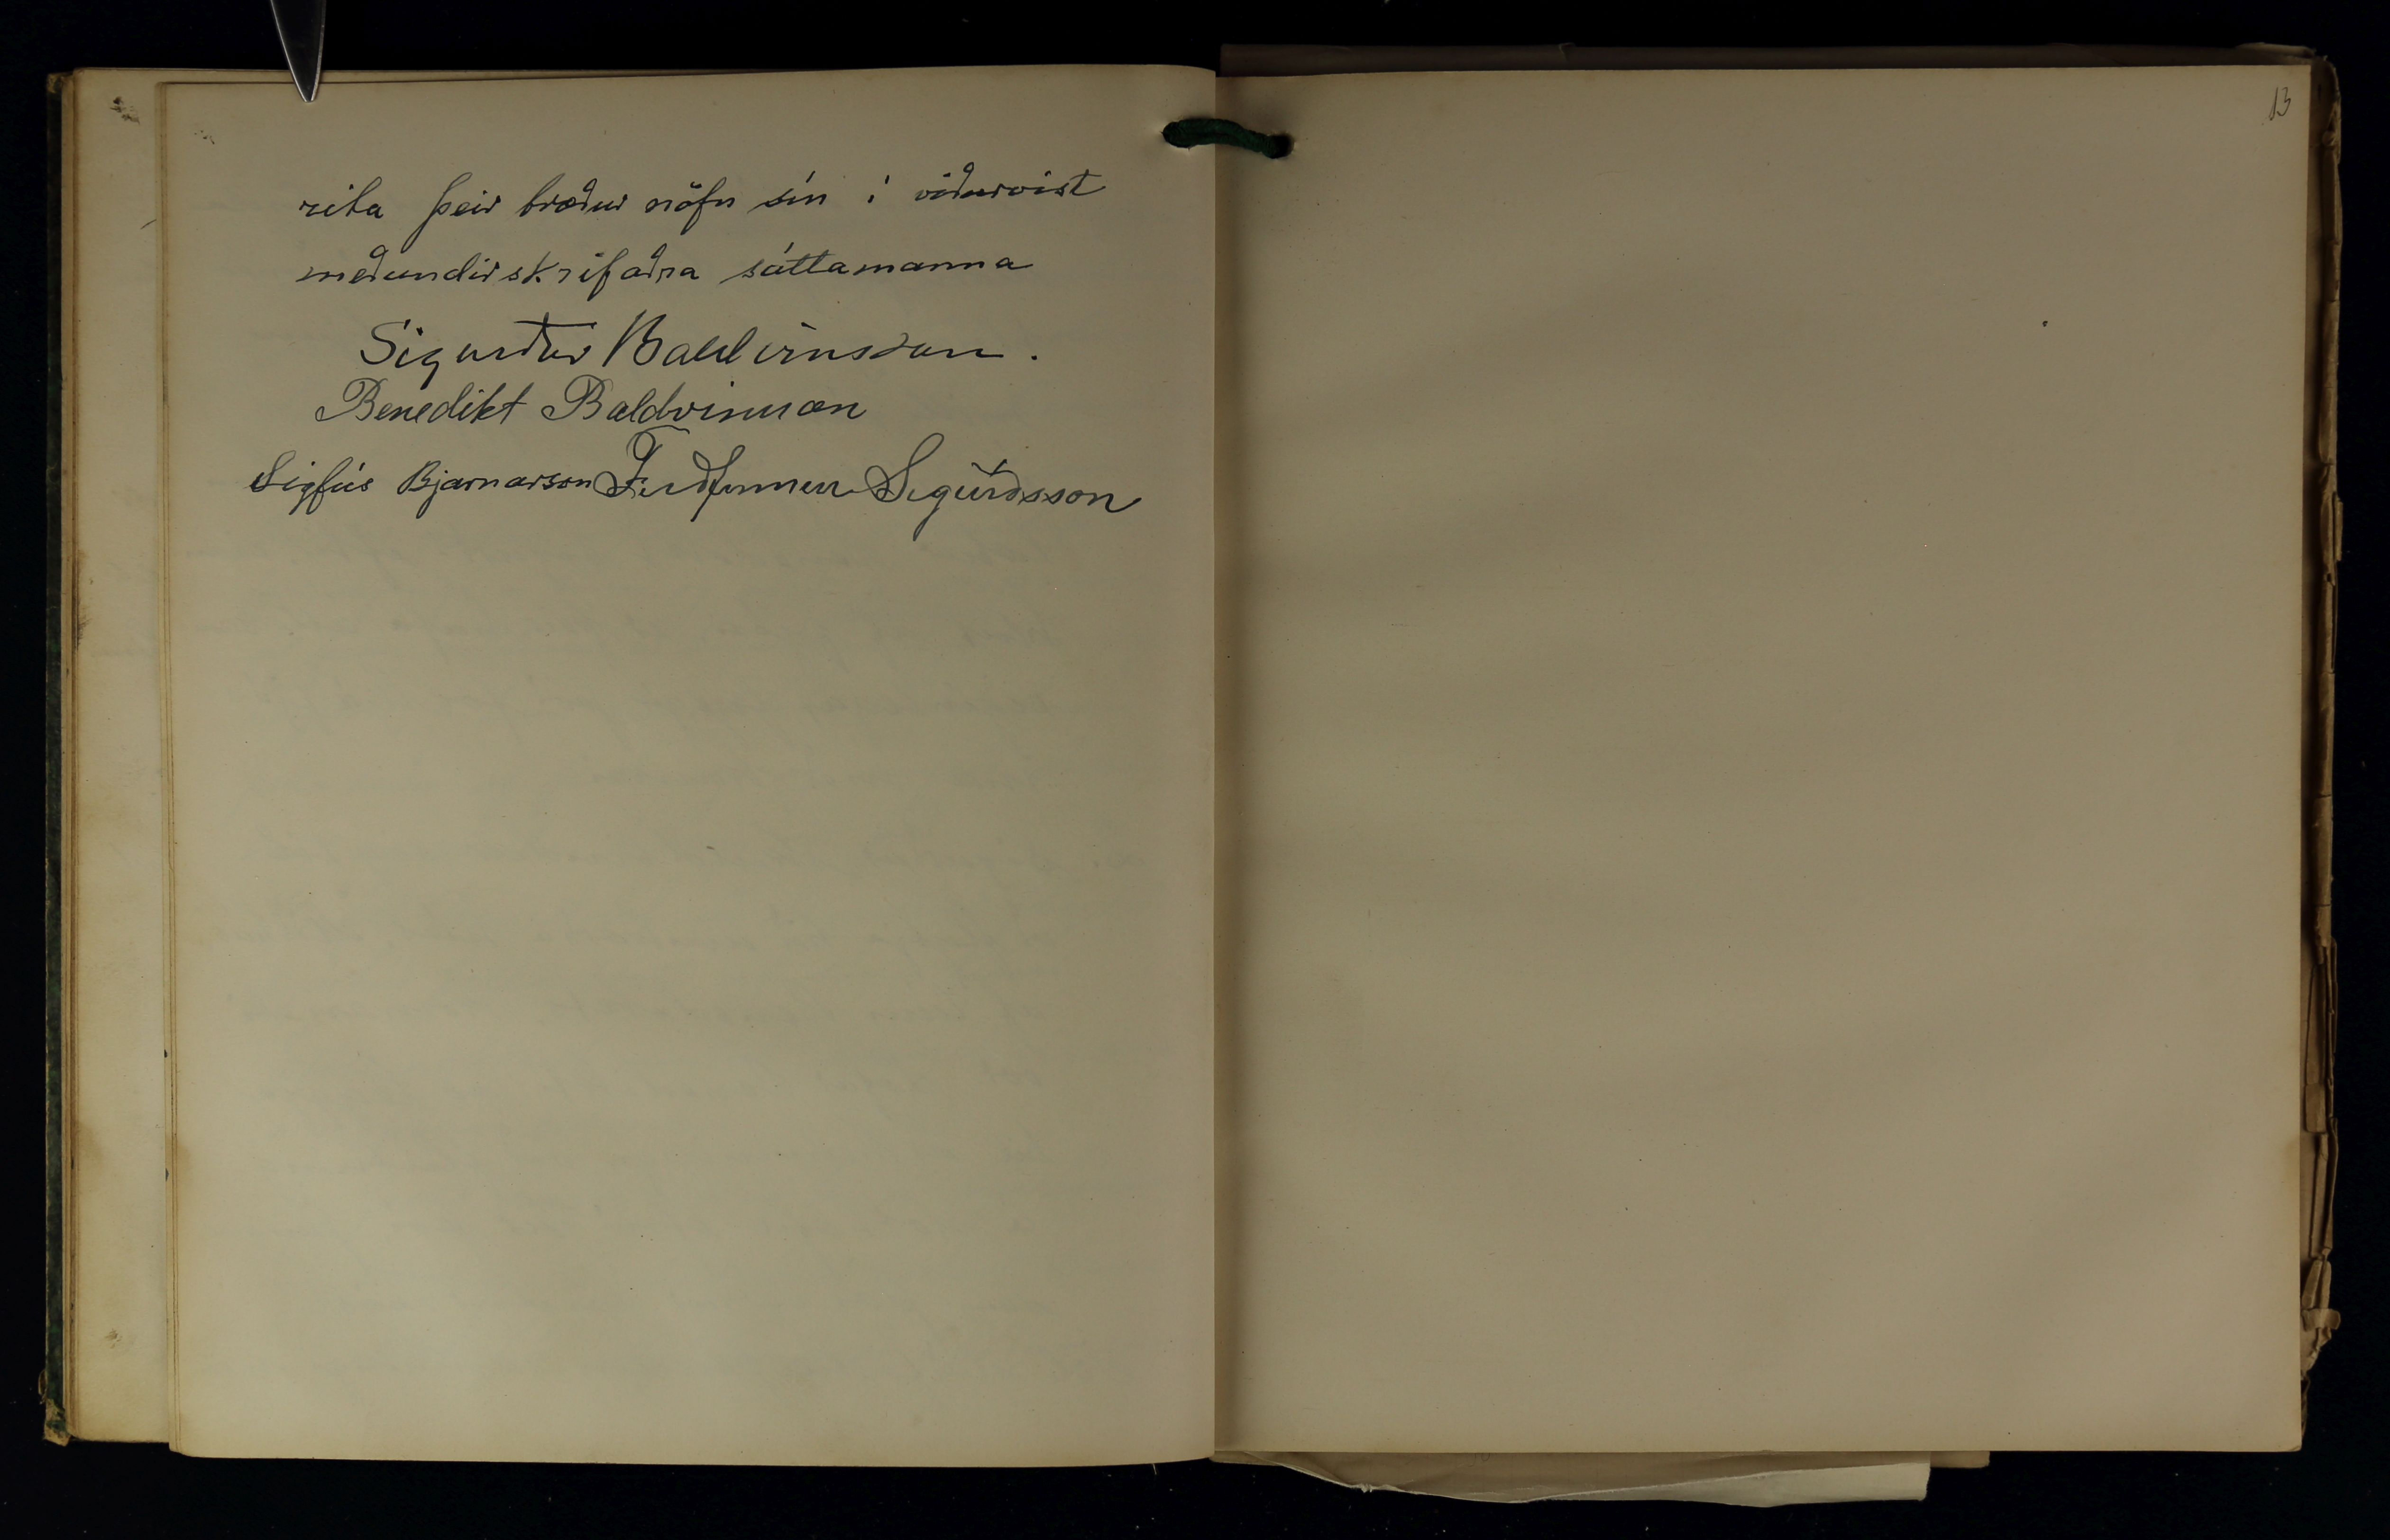 rita þeir bræður nöfn sín í viðurvist
meðundirskrifaðra sáttamanna
Sigurður Baldvinsson.
Benedikt Baldvinsson
Sigfús Bjarnarson Friðfinnur Sigurðsson
13